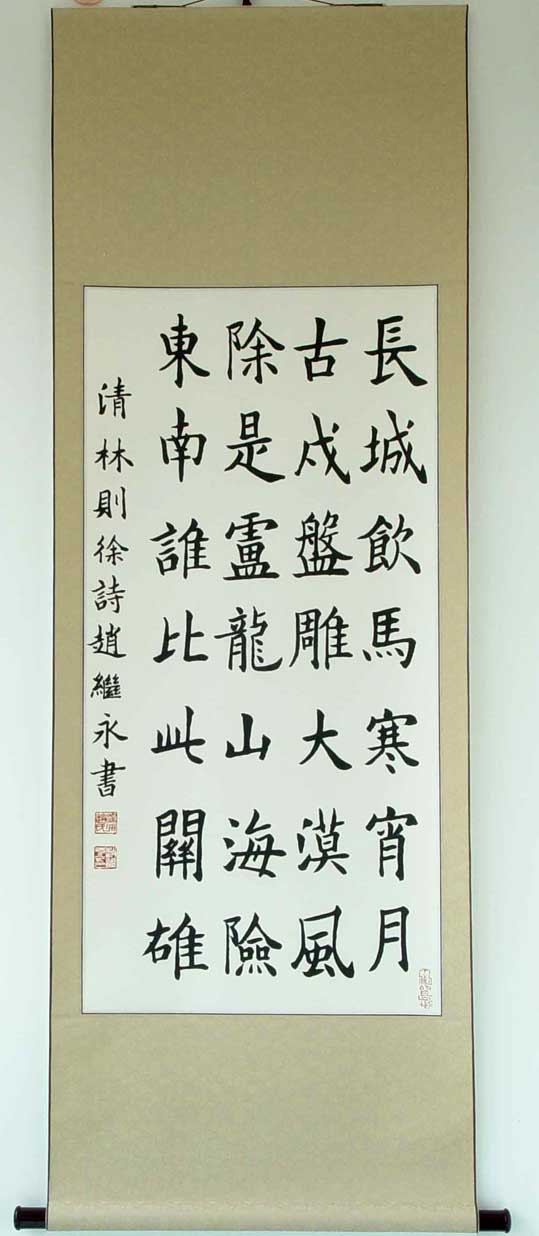 長城飲馬寒宵月
古戍盤雕大漠風
除是盧龍山海險
東南誰比此關雄
清林則徐詩趙繼永書